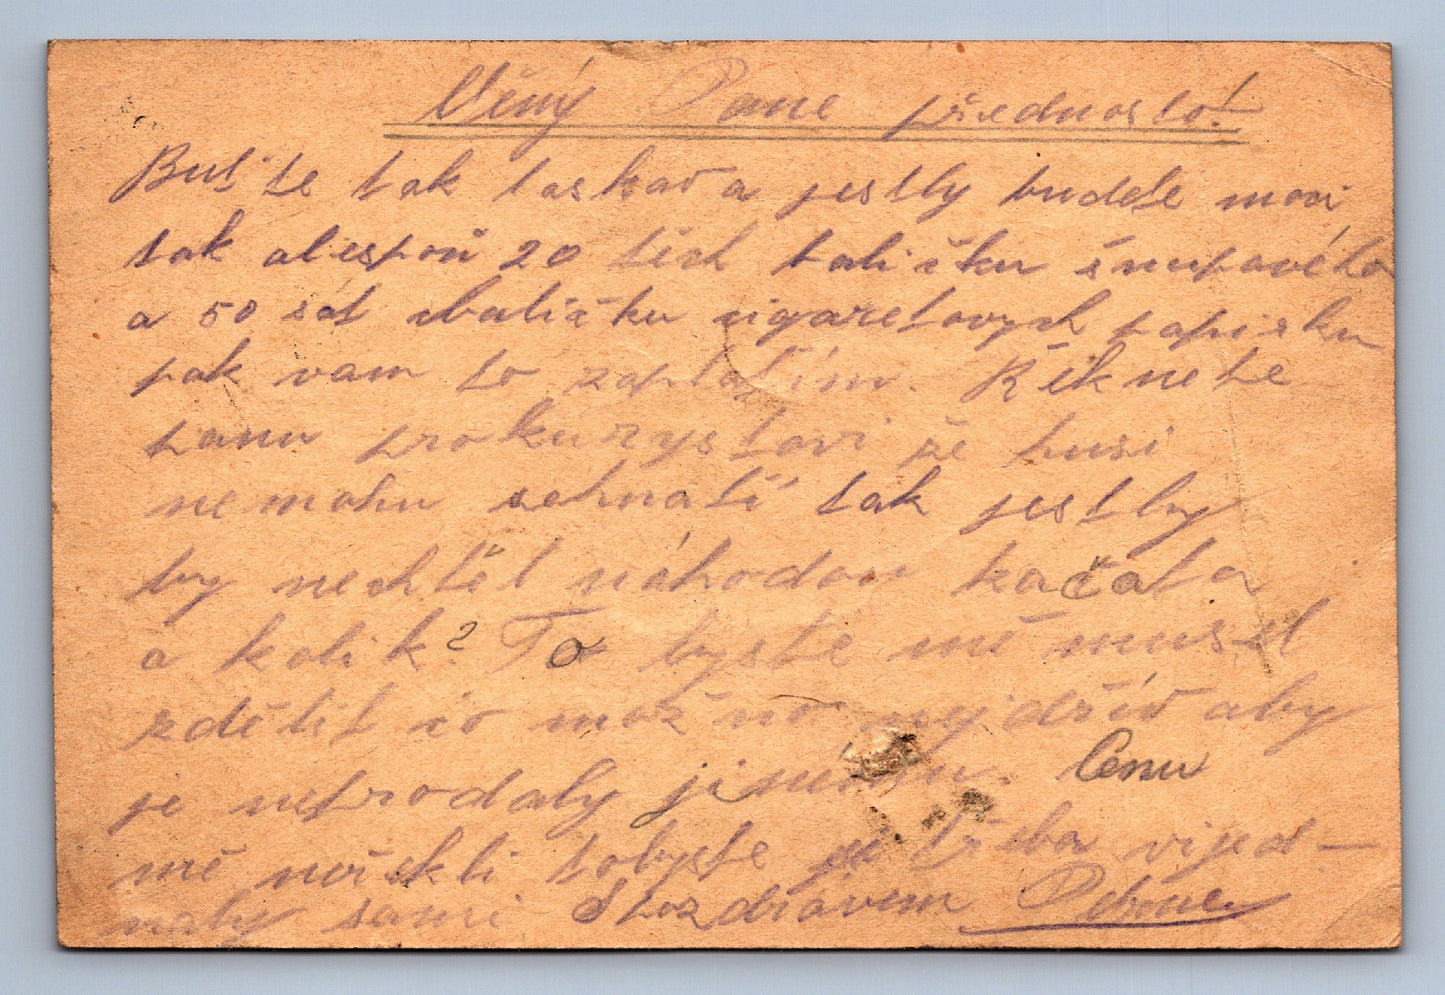 Věný Pane přednosto!
Buť te tak laskav a jestly budete moci
tak alespoň 20 těch balíčku šnupavého
a 50 sát balíčku cigaretovych papisku
pak vam to zaplatím. Řekněte
panu prokurystovi že husi
nemohu sehnatí tak jestly
by nechtěl náhodou kačata
a kolik? To byste mě musel
zdělit co možno nejdšív aby
je neprodaly jinému. Cenu
mě neřekli tobyste je třeba vijed–
naly sami. S pozdravem